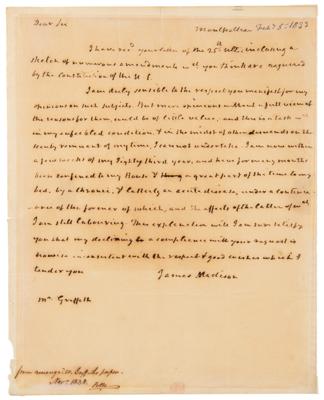 Dear Sir Montpellier Feb. 5. 1833
I have recd. your letter of the 25th Ult: inclosing a
sketch of numerous amendments wch. you think are required
by the Constitution of the U. S.
I am duly sensible to the respect you manifest for my
opinions on such subjects. But mere opinions without a full view of
the reasons for them, could be of little value, and this is a task wch.
in my enfeebled condition, & in the midst of other demands on the
scanty remnant of my time, I cannot undertake. I am now within
a few weeks of my Eighty third year, and have for many months
been confined to my House & a great part of the time to my
bed, by a chronic, & latterly an acute disease, under a continu-
ance of the former of which, and the effects of the latter of wch.
I am still labouring. This explanation will I am sure satisfy
you that my declining a compliance with your request is
no wise inconsistent with the respect & good wishes which I
tender you
James Madison
Mr. Griffith
from amongst
Novr. 1838.